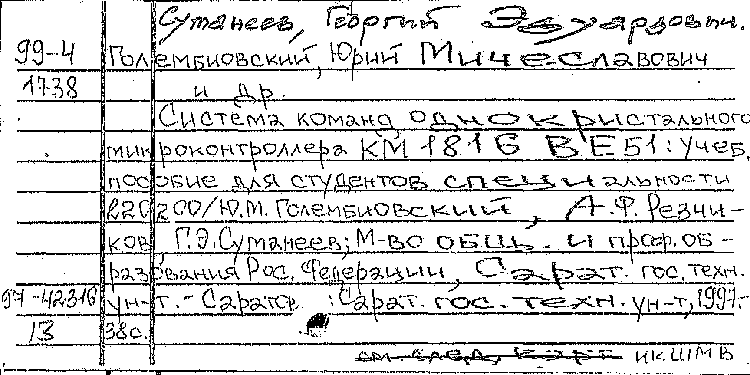 Сутанеев, Георгий Эдуардович.
99-4 Голембиовский, Юрий Мичеславович
1738 и др.
Система команд однокристального
микроконтроллера КМ1816 ВЕ51: учеб.
пособие для студентов специальности
220200/Ю.М. Голембиовский, А.Ф. Резчи-
ков, Г.Э. Сутанеев; М-во общ. и проф. об-
разования Рос. Федерации, Сарат. гос. техн.
97-42316 ун-т. - Саратов : Сарат. гос. техн. ун-т, 1997.-
13 38с.
см. след. карт